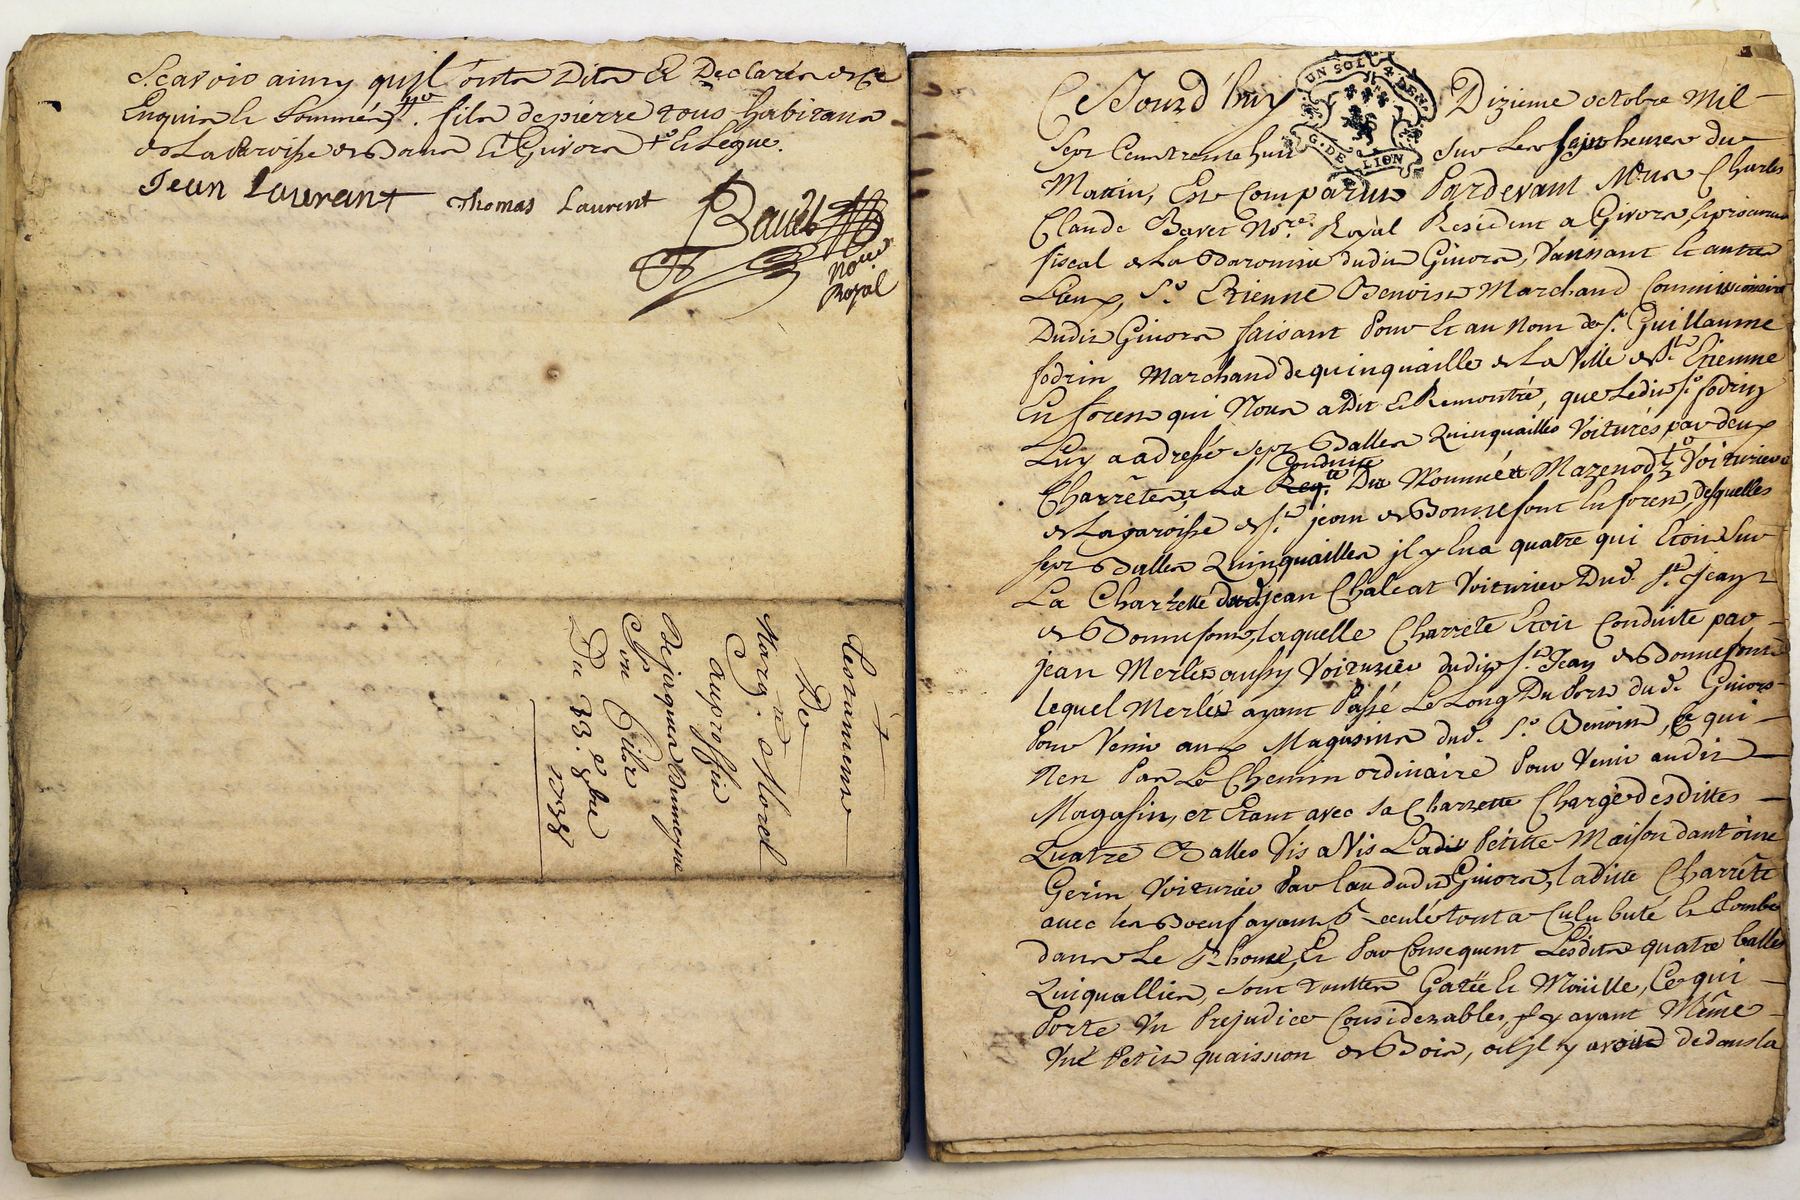 Scavoir ainsy qu'il ont Dit & Declaré de ce
Enquis & Sommés, fils de pierre tous habitans
de La Paroisse de Givors & Legue.
Jean Laurant Thomas Laurent
Bavet
No.re
Royal
Testament
De
Marg.te Morel
au proffit
De jacques Dumergue
Son Filz
Du 23.e 8bre
1738
UN SOL 4 DEN.
G. DE LION
Ce Jourd'huy Dizieme octobre Mil
Sept Cent trente huit sur Les sept heures du
Matin, Est Comparu Pardevant Nous Charles
Claude Bavet No.re Royal Resident a Givors, & procureur
fiscal de La Baronnie dudit Givors, & autres
Lieux, S.r Etienne Benoist Marchand Commissionnaire
Dudit Givors faisant Pour & au Nom de S.r Guillaume
fodrin Marchand de quinquaille de La Ville de S.t Etienne
En forest qui Nous a Dit & Remontré, que Ledit S.r fodrin
Luy a adressé Sept Balles Quinquailles Voiturés par deux
Charrêtes, a La Conduite Du Nommé Mazenod Voiturier
de La paroisse de S.t jean de Bonnefont En forest, desquelles
sept Balles Quinquailles jl y En a quatre qui Etoit Sur
La Charrette dud. jean Chaleat Voiturier Dud. S.t Jean
de Bonnefont, laquelle Charrete Etoit Conduite par
jean Merle aussy Voiturier dudit S.t Jean de Bonnefont
lequel Merle ayant Passé Le Long Du Port dud. Givors
Pour Venir aux Magasins dud. S.r Benoist, Ce qui
n'est Pas Le Chemin ordinaire Pour Venir audit
Magasin, et Etant avec Sa Charrette Chargé desdittes
Quatre Balles Vis a Vis La Petitte Maison dantoine
Gerin Voiturier Par Eau dudit Givors, laditte Charrête
avec les Boeuf ayant Reculé tout a Culubuté & Tombé
dans Le Rhone, & Par Consequent Lesdits quatre balles
Quiquallies, Sont touttes Gatée & Moüille, Ce qui
Porte Un Prejudice Considerables, jl y ayant Même
Une Petite quaission de Bois, ou jl y avoit dedans la